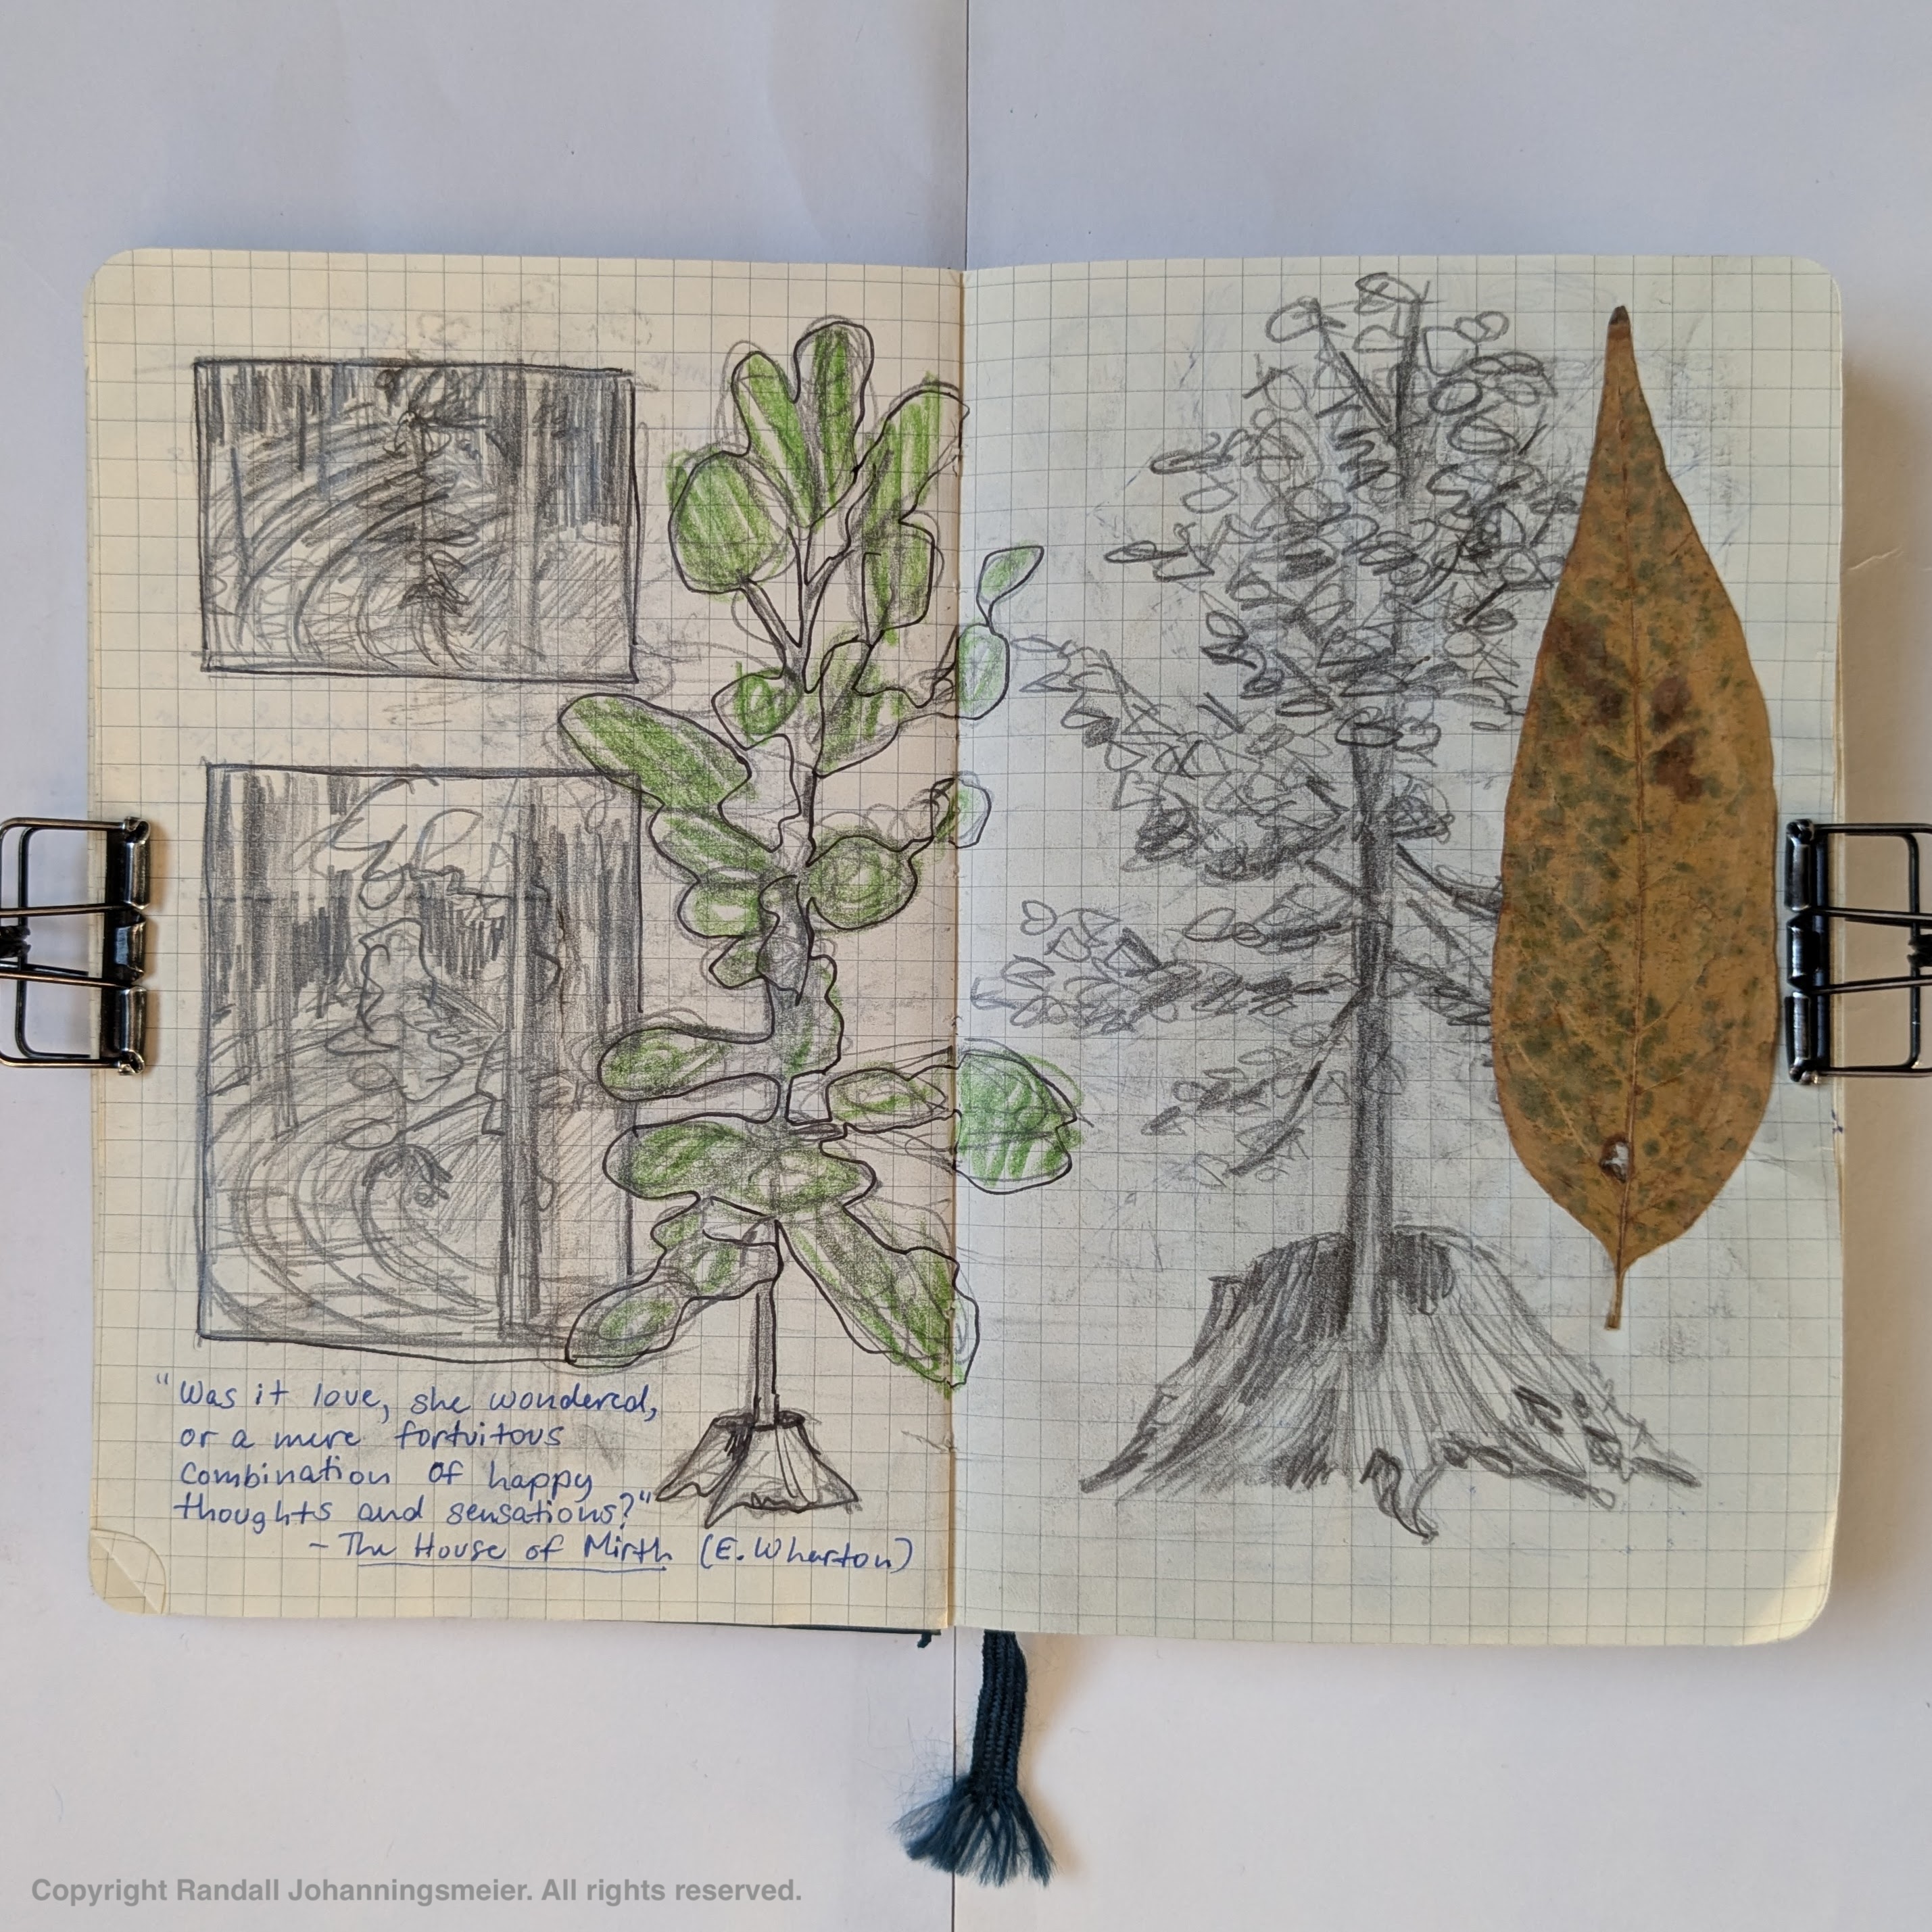 "Was it love, she wondered,
or a mere fortuitous
combination of happy
thoughts and sensations?"
- The House of Mirth (E. Wharton)
Copyright Randall Johanningsmeier. All rights reserved.